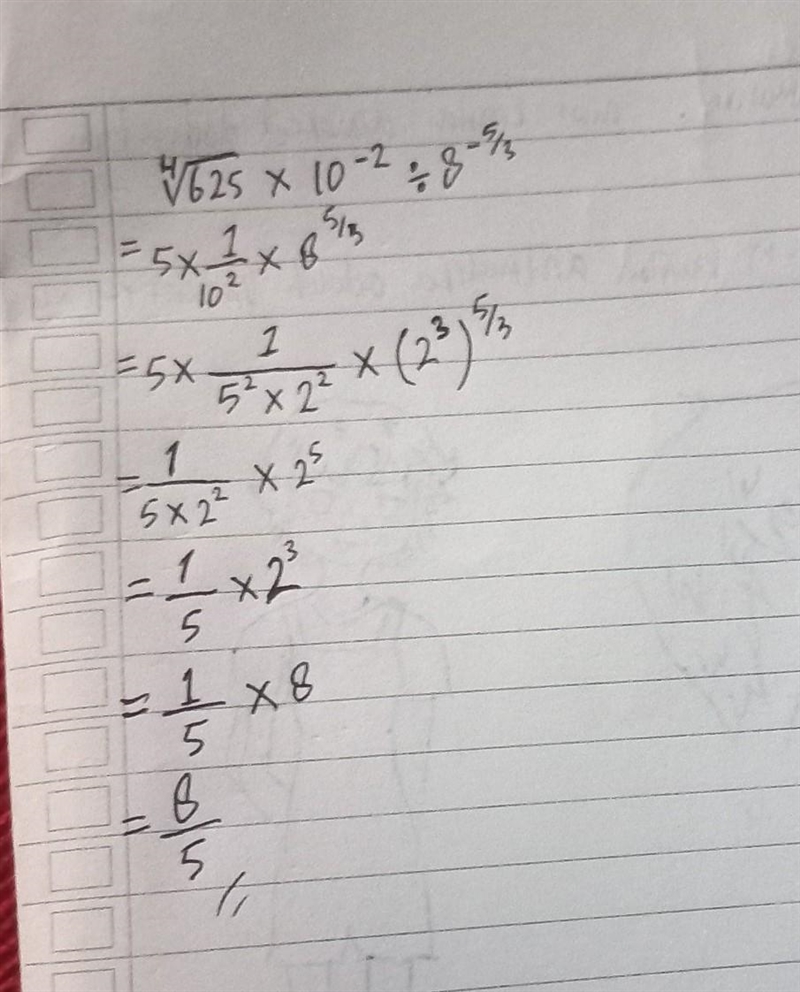 ∜625 × 10⁻² ÷ 8^(-5/3)
= 5 × 1/10² × 8^(5/3)
= 5 × 1/(5² × 2²) × (2³)^(5/3)
= 1/(5 × 2²) × 2⁵
= 1/5 × 2³
= 1/5 × 8
= 8/5 //